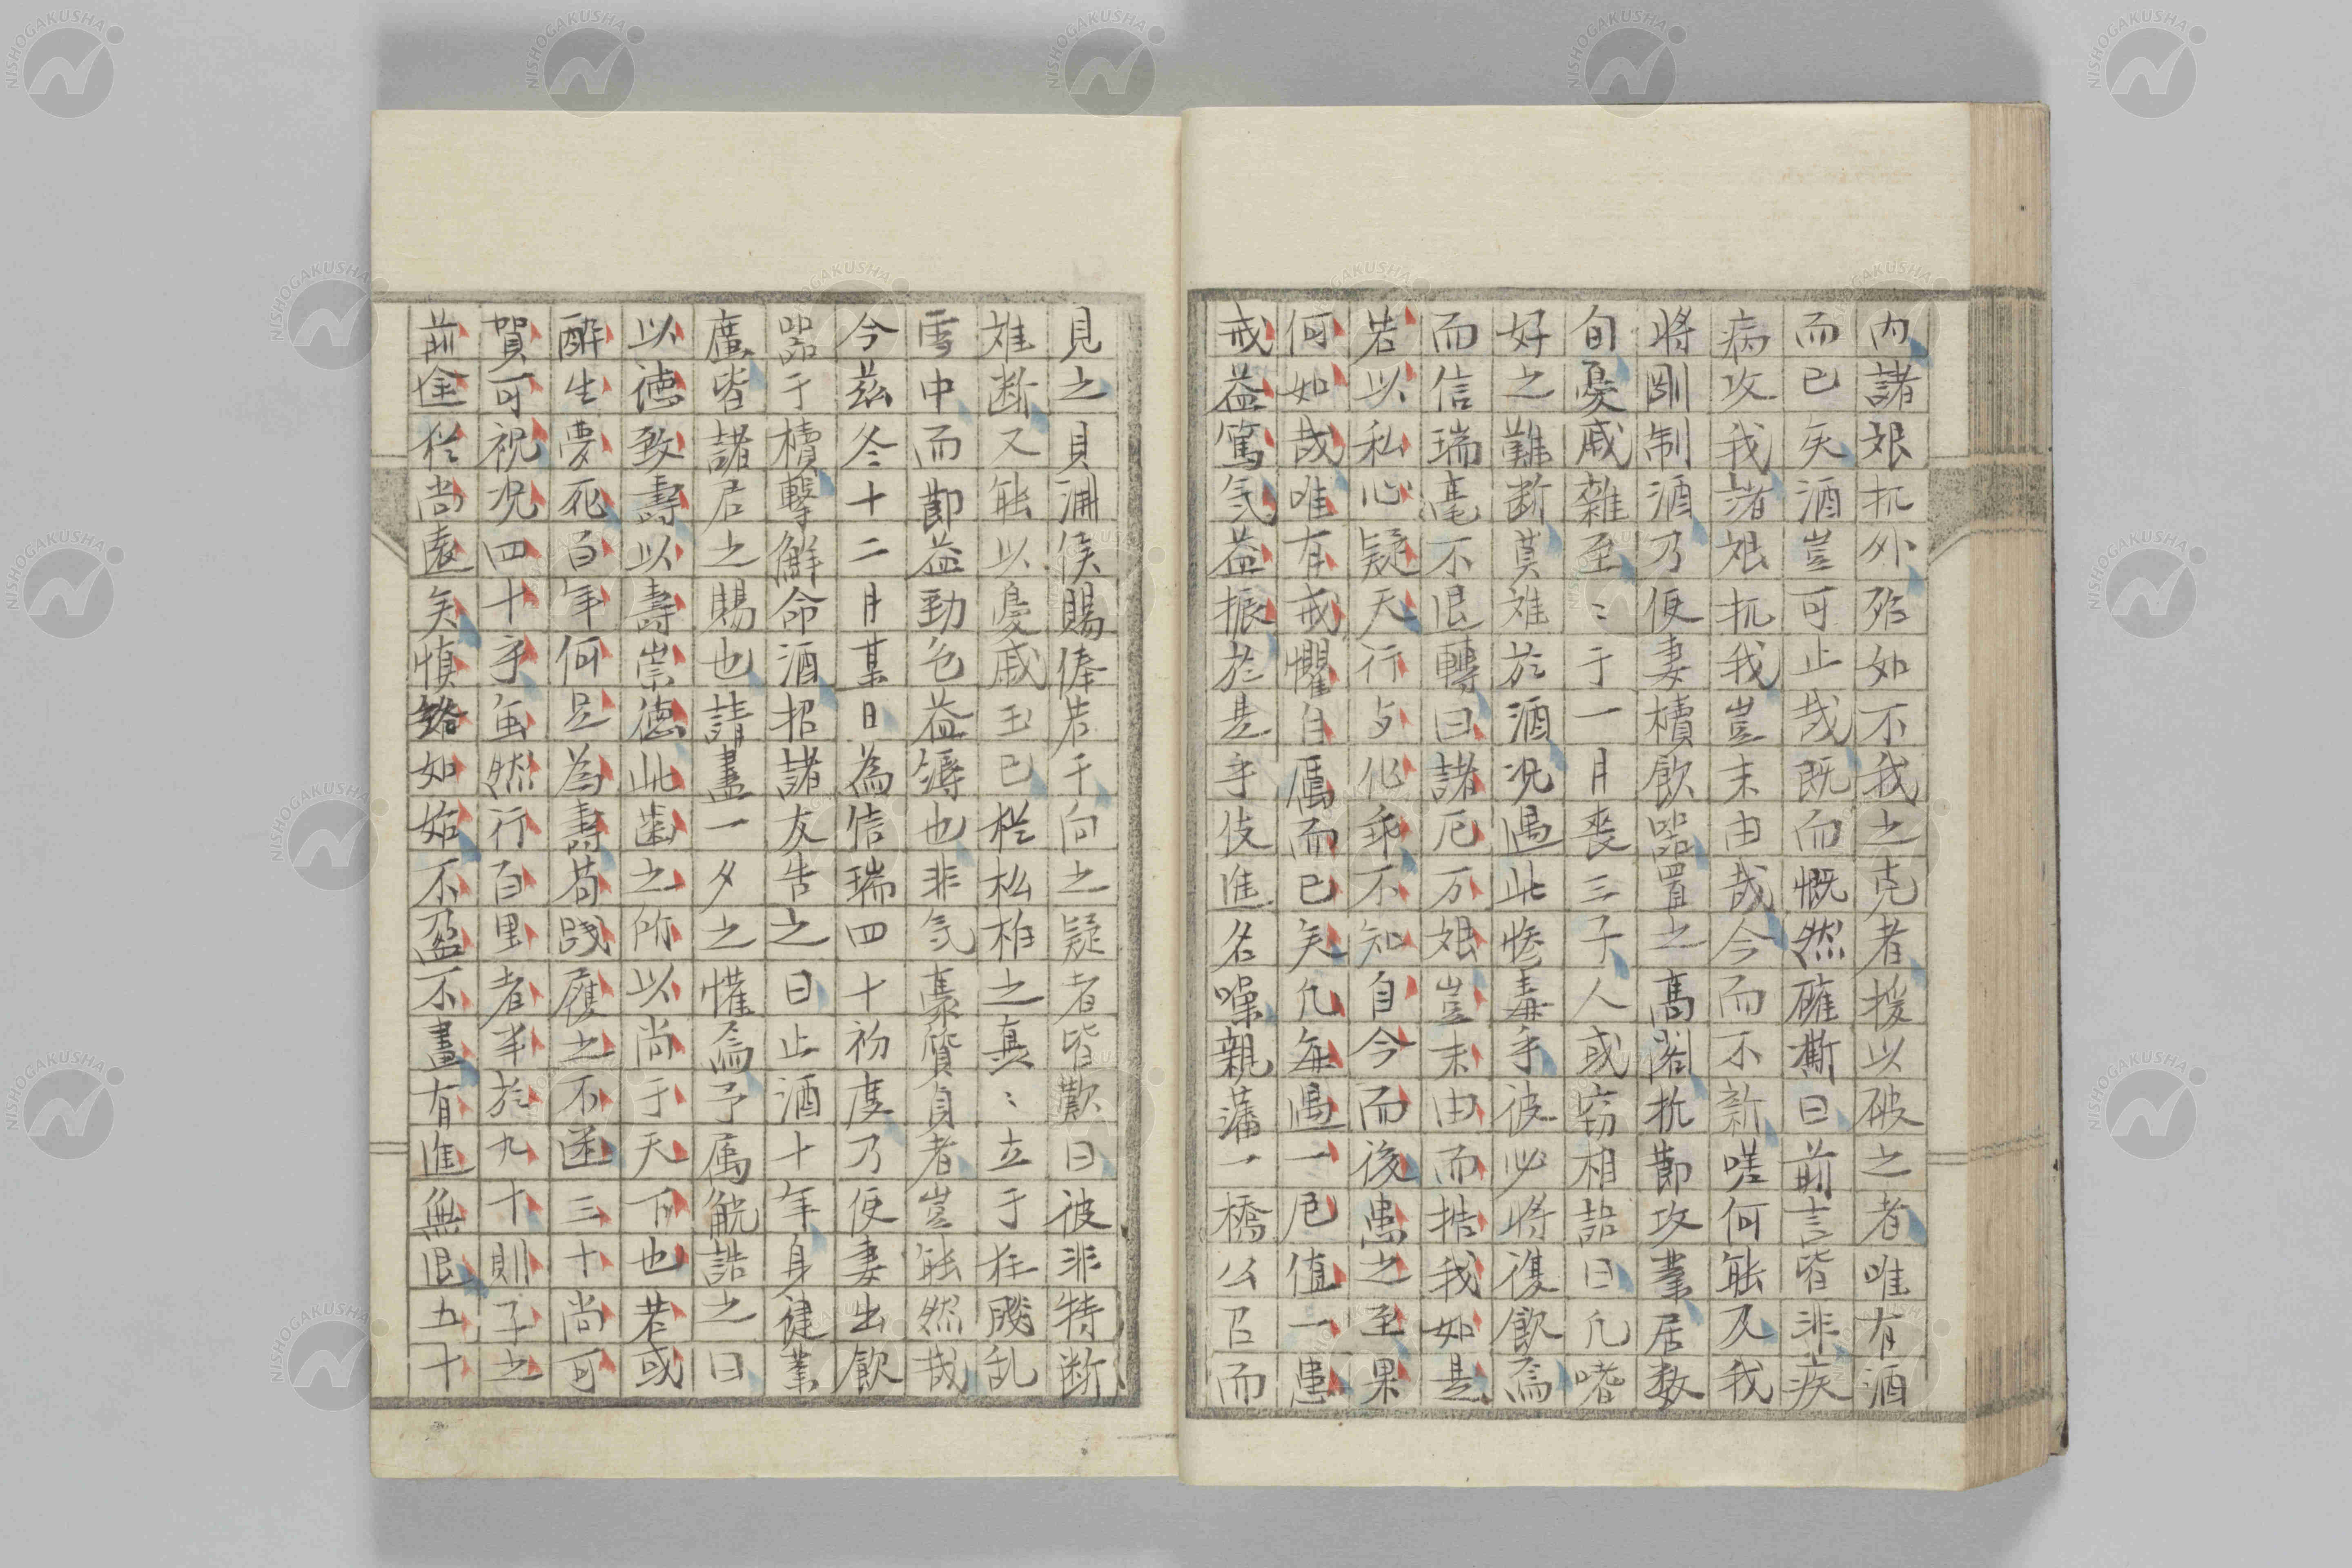 内諸艰抏外殆如不我之克者援以破之者唯有酒
而已矣酒豈可止哉既而慨然確漸曰前言皆非疾
病攻我諸艰抏我豈末由哉今而不新嗟何能及我
將剛制酒乃便妻櫝飲噐置之高閣抗節攻業居数
旬憂戚雜至〻于一月喪三子人或窃相語曰凢嗜
好之難断莫难於酒况遇此惨毒乎彼必将復飲焉
而信瑞毫不退轉曰諸厄万艰豈末由而撓我如是
若以私心疑天行与化乖不知自今而後禺之至果
何如哉唯有戒懼自厲而已矣凢每遇一厄值一患
戒益篤氣益振於是乎伎進名噪親藩一橋公召而
見之貝淵侯賜俸告于向之疑者皆歎曰彼非特断
难断又能以憂戚玉已松私柏之真〻立于狂飈乱
雪中而節益勁色益薅也非氣稟質貞者豈能然哉
今兹冬十二月某日為信瑞四十初度乃便妻出飲
噐于櫝擊鮮命酒招諸友告之曰止酒十年身健業
廣皆諸君之賜也請盡一夕之懽焉予属觥誥之曰
以徳致壽以壽崇徳此歯之所以尚于天下也若或
醉生夢死百年何足為壽苟践履之不迷三十尚可
賀可祝况四十乎虽然行百里者半於九十則子之
前途犹尚遠矣慎終如始不盈不盡有進無退五十